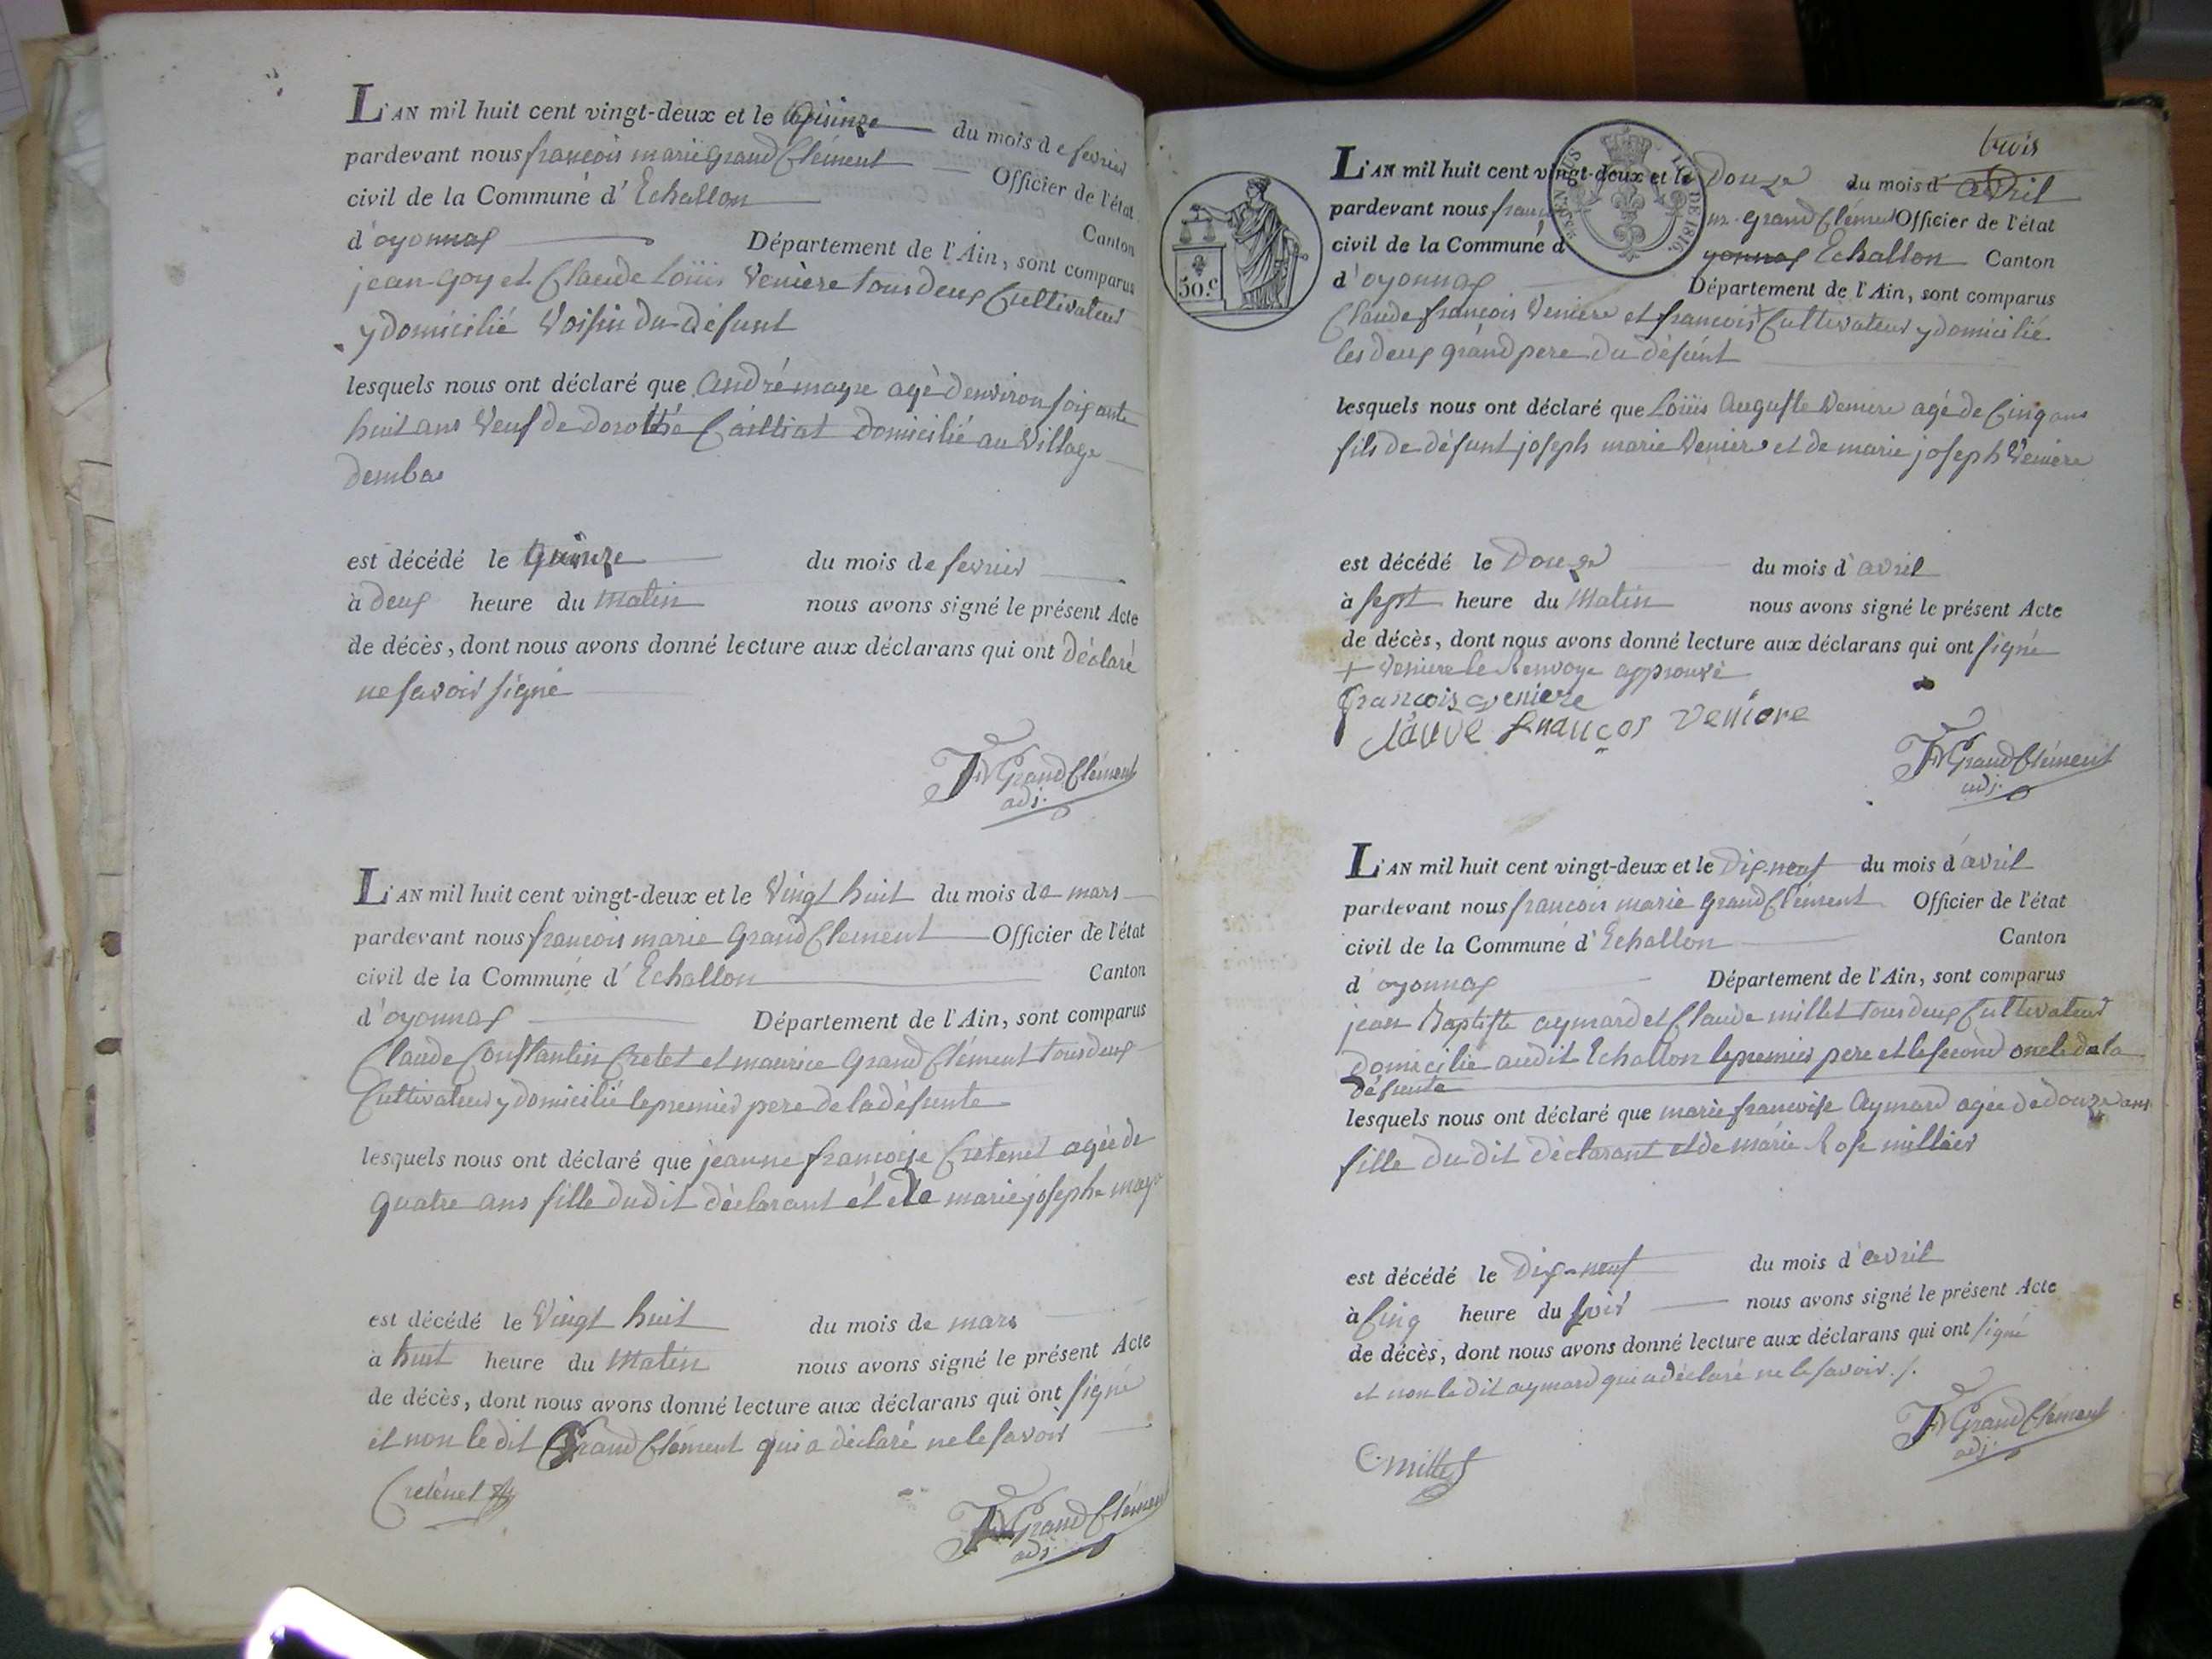 L'AN mil huit cent vingt-deux et le quinze du mois de fevrier
pardevant nous françois marie Grand Clément Officier de l'état
civil de la Commune d' Echallon Canton
d'oyonnax Département de l'Ain, sont comparus
jean Goy et Claude Loüis Veniere tous deux Cultivateur
y domicilié Voisin du défunt
lesquels nous ont déclaré que André mayre agé d'environ soixante
huit ans Veuf de dorothé Cailliat domicilié au Village
dembas
est décédé le quinze du mois de fevrier
à deux heure du Matin nous avons signé le présent Acte
de décès, dont nous avons donné lecture aux déclarans qui ont déclaré
ne savoir signé
Grand Clément
adj.
L'AN mil huit cent vingt-deux et le Vingt huit du mois de mars
pardevant nous françois marie Grand Clement Officier de l'état
civil de la Commune d' Echallon Canton
d'oyonnax Département de l'Ain, sont comparus
Claude Constantin Cretet et maurice Grand Clément tous deux
Cultivateur y domicilié le premier pere de la défunte
lesquels nous ont déclaré que jeanne françoise Cretenet agée de
quatre ans fille dudit déclarant et de marie josephe
est décédé le Vingt huit du mois de mars
à huit heure du Matin nous avons signé le présent Acte
de décès, dont nous avons donné lecture aux déclarans qui ont signé
et non le dit Grand Clément qui a déclaré ne le savoir
Cretenet
Grand Clément
adj.
trois
L'AN mil huit cent vingt-deux et le Douze du mois d'avril
pardevant nous Grand Clément Officier de l'état
civil de la Commune d' Echallon Canton
d'oyonnax Département de l'Ain, sont comparus
50.c
DE 1816.
Claude françois Veniere et françois + Cultivateur y domicilié
les deux grand pere du défunt
lesquels nous ont déclaré que Loüis Auguste Veniere agé de Cinq ans
fils de défunt joseph marie Veniere et de marie joseph Veniere
est décédé le Douze du mois d'avril
à sept heure du Matin nous avons signé le présent Acte
de décès, dont nous avons donné lecture aux déclarans qui ont signé
+ Veniere le Renvoye approuvé
françois veniere
claude franços veniere
Grand Clément
adj.
L'AN mil huit cent vingt-deux et le Dix neuf du mois d'avril
pardevant nous françois marie Grand Clément Officier de l'état
civil de la Commune d' Echallon Canton
d'oyonnax Département de l'Ain, sont comparus
jean Baptiste aymard et Claude millet tous deux Cultivateur
domicilie audit Echallon le premier pere et le second oncle de la
défunte
lesquels nous ont déclaré que marie françoise Aymard agée de douze ans
fille du dit déclarant et de marie Rose
est décédé le Dix-neuf du mois d'avril
à Cinq heure du soir nous avons signé le présent Acte
de décès, dont nous avons donné lecture aux déclarans qui ont signé
et non le dit aymard qui a déclaré ne le savoir
C. millet
Grand Clément
adj.